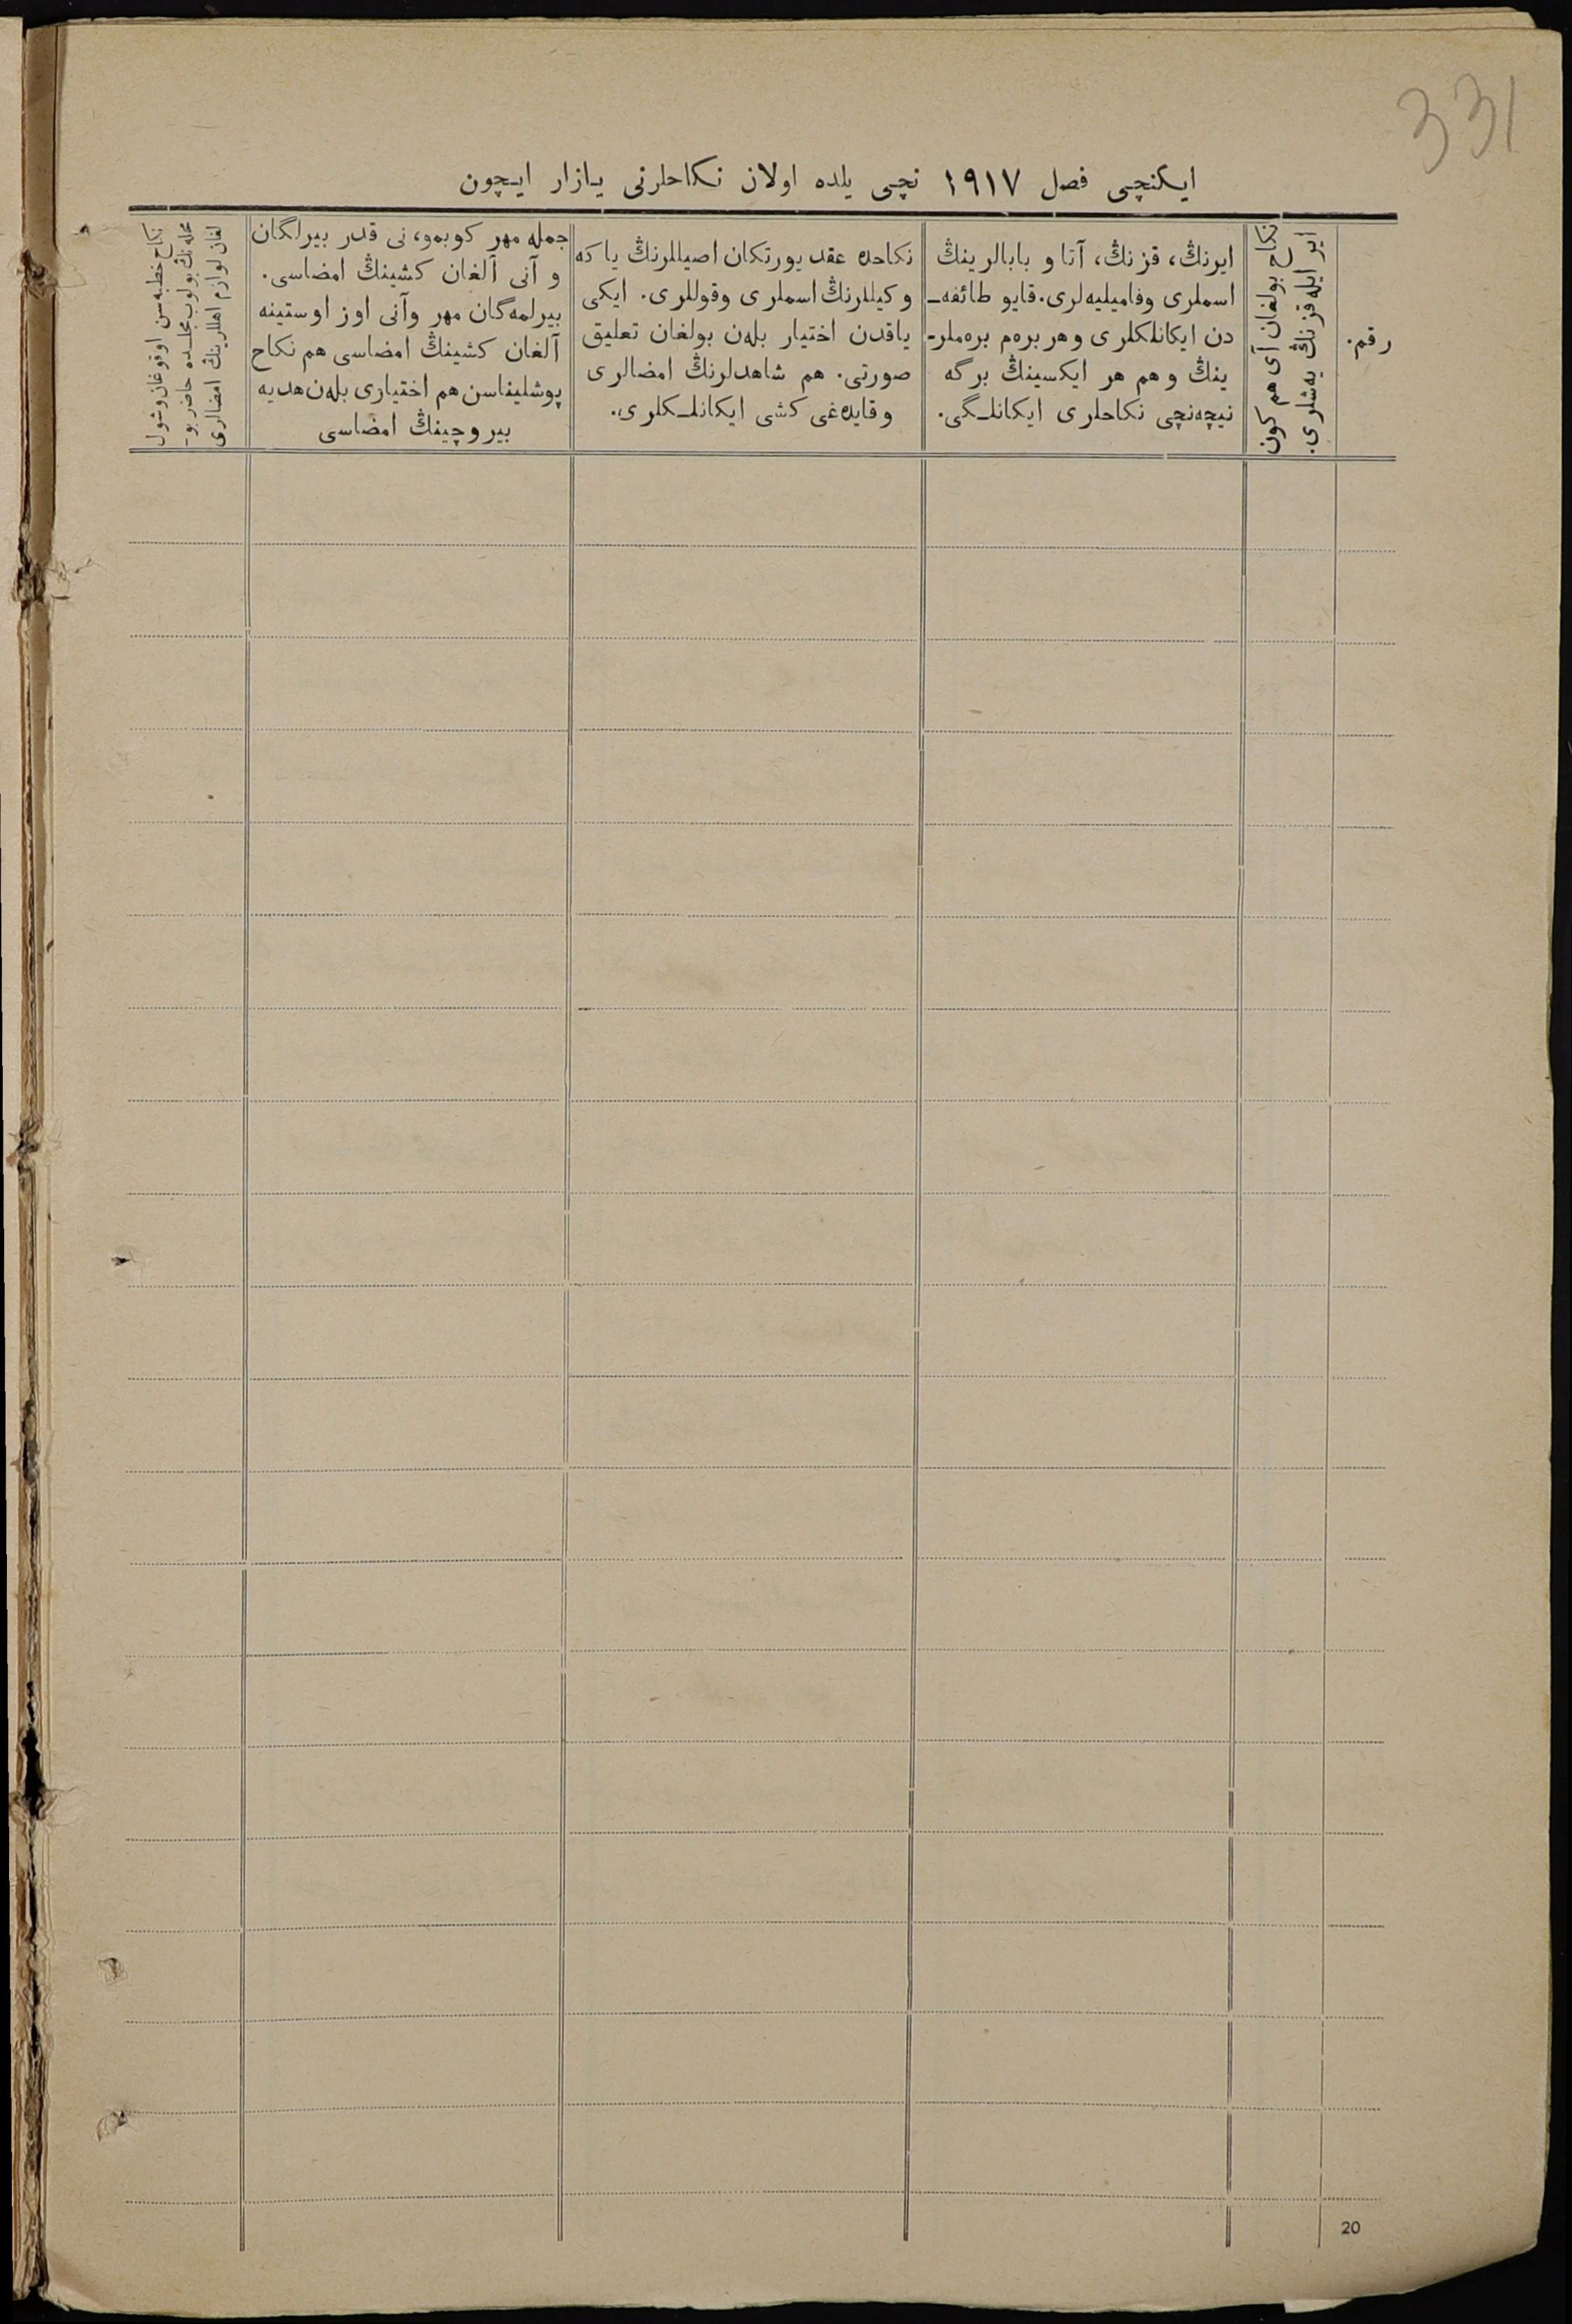 331
ایکنچی فصل ۱۹۱۷ نچی یلده اولان نکاحلرنی یازار ایچون
رقم.
ایر ایله قزنڭ یه‌شلری.
نکاح بولغان آی هم کون
ایرنڭ، قزنڭ، آتا و بابالرینڭ
اسملری وفامیلیه‌لری. قایو طائفه‌ـ
دن ایکانلکلری وهر بره‌م بره‌ملرـ
ینڭ وهم هر ایکسینڭ برگه
نیچه‌نچی نکاحلری ایکانلـگی.
نکاحده عقد یورتکان اصیللرنڭ یا که
وکیللرنڭ اسملری وقوللری. ایکی
یاقدن اختیار بله‌ن بولغان تعلیق
صورتی. هم شاهدلرنڭ امضالری
وقایده‌غی کشی ایکانلـکلری.
جمله مهر کوبمو، نی قدر بیرلگان
و آنی آلغان کشینڭ امضاسی.
بیرلمه‌گان مهر وآنی اوز اوستینه
آلغان کشینڭ امضاسی هم نکاح
پوشلیناسن هم اختیاری بله‌ن هدیه
بیروچینڭ امضاسی
نکاح خطبه‌سن اوقوغان وشول
محله‌نڭ بولوب مجلـده حاضر بوـ
لغان لوازم اهللرینڭ امضالری
20